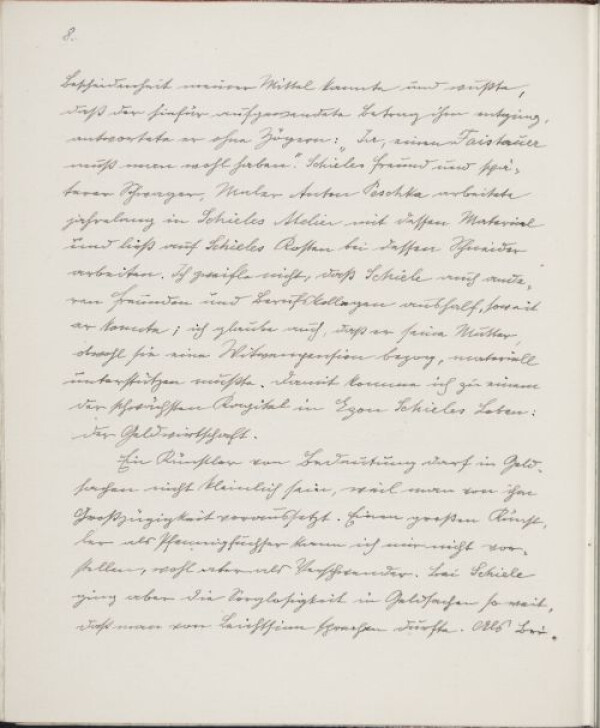 8.
Bescheidenheit meiner Mittel kannte und wußte,
daß der hiefür aufgewendete Betrag ihm entging,
antwortete er ohne Zögern: „Ja, einen Faistauer
muß man wohl haben“. Schieles Freund und spä-
terer Schwager, Maler Anton Peschka arbeitete
jahrelang in Schieles Atelier mit dessen Material
und ließ auf Schieles Kosten bei dessen Schneider
arbeiten. Ich zweifle nicht, daß Schiele auch ande-
ren Freunden und Berufskollegen aushalf, soweit
er konnte; ich glaube auch, daß er seine Mutter,
obwohl sie eine Witwenpension bezog, materiell
unterstützen mußte. Damit komme ich zu einem
der schwächsten Kapitel in Egon Schieles Leben:
der Geldwirtschaft.
Ein Künstler von Bedeutung darf in Geld-
sachen nicht kleinlich sein, weil man von ihm
Großzügigkeit voraussetzt. Einen großen Künst-
ler als Pfennigfuchser kann ich mir nicht vor-
stellen, wohl aber als Verschwender. Bei Schiele
ging aber die Sorglosigkeit in Geldsachen so weit,
daß man von Leichtsinn sprechen durfte. Als Bei-